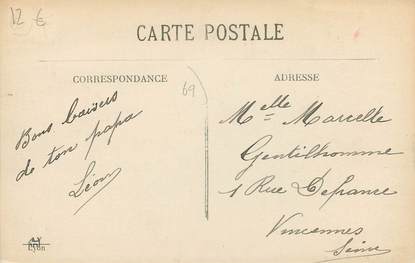 12 €
CARTE POSTALE
CORRESPONDANCE
ADRESSE
69
Bons baisers
de ton papa
Léon
Melle Marcelle
Gentilhomme
1 Rue Defrance
Vincennes
Seine
Lyon